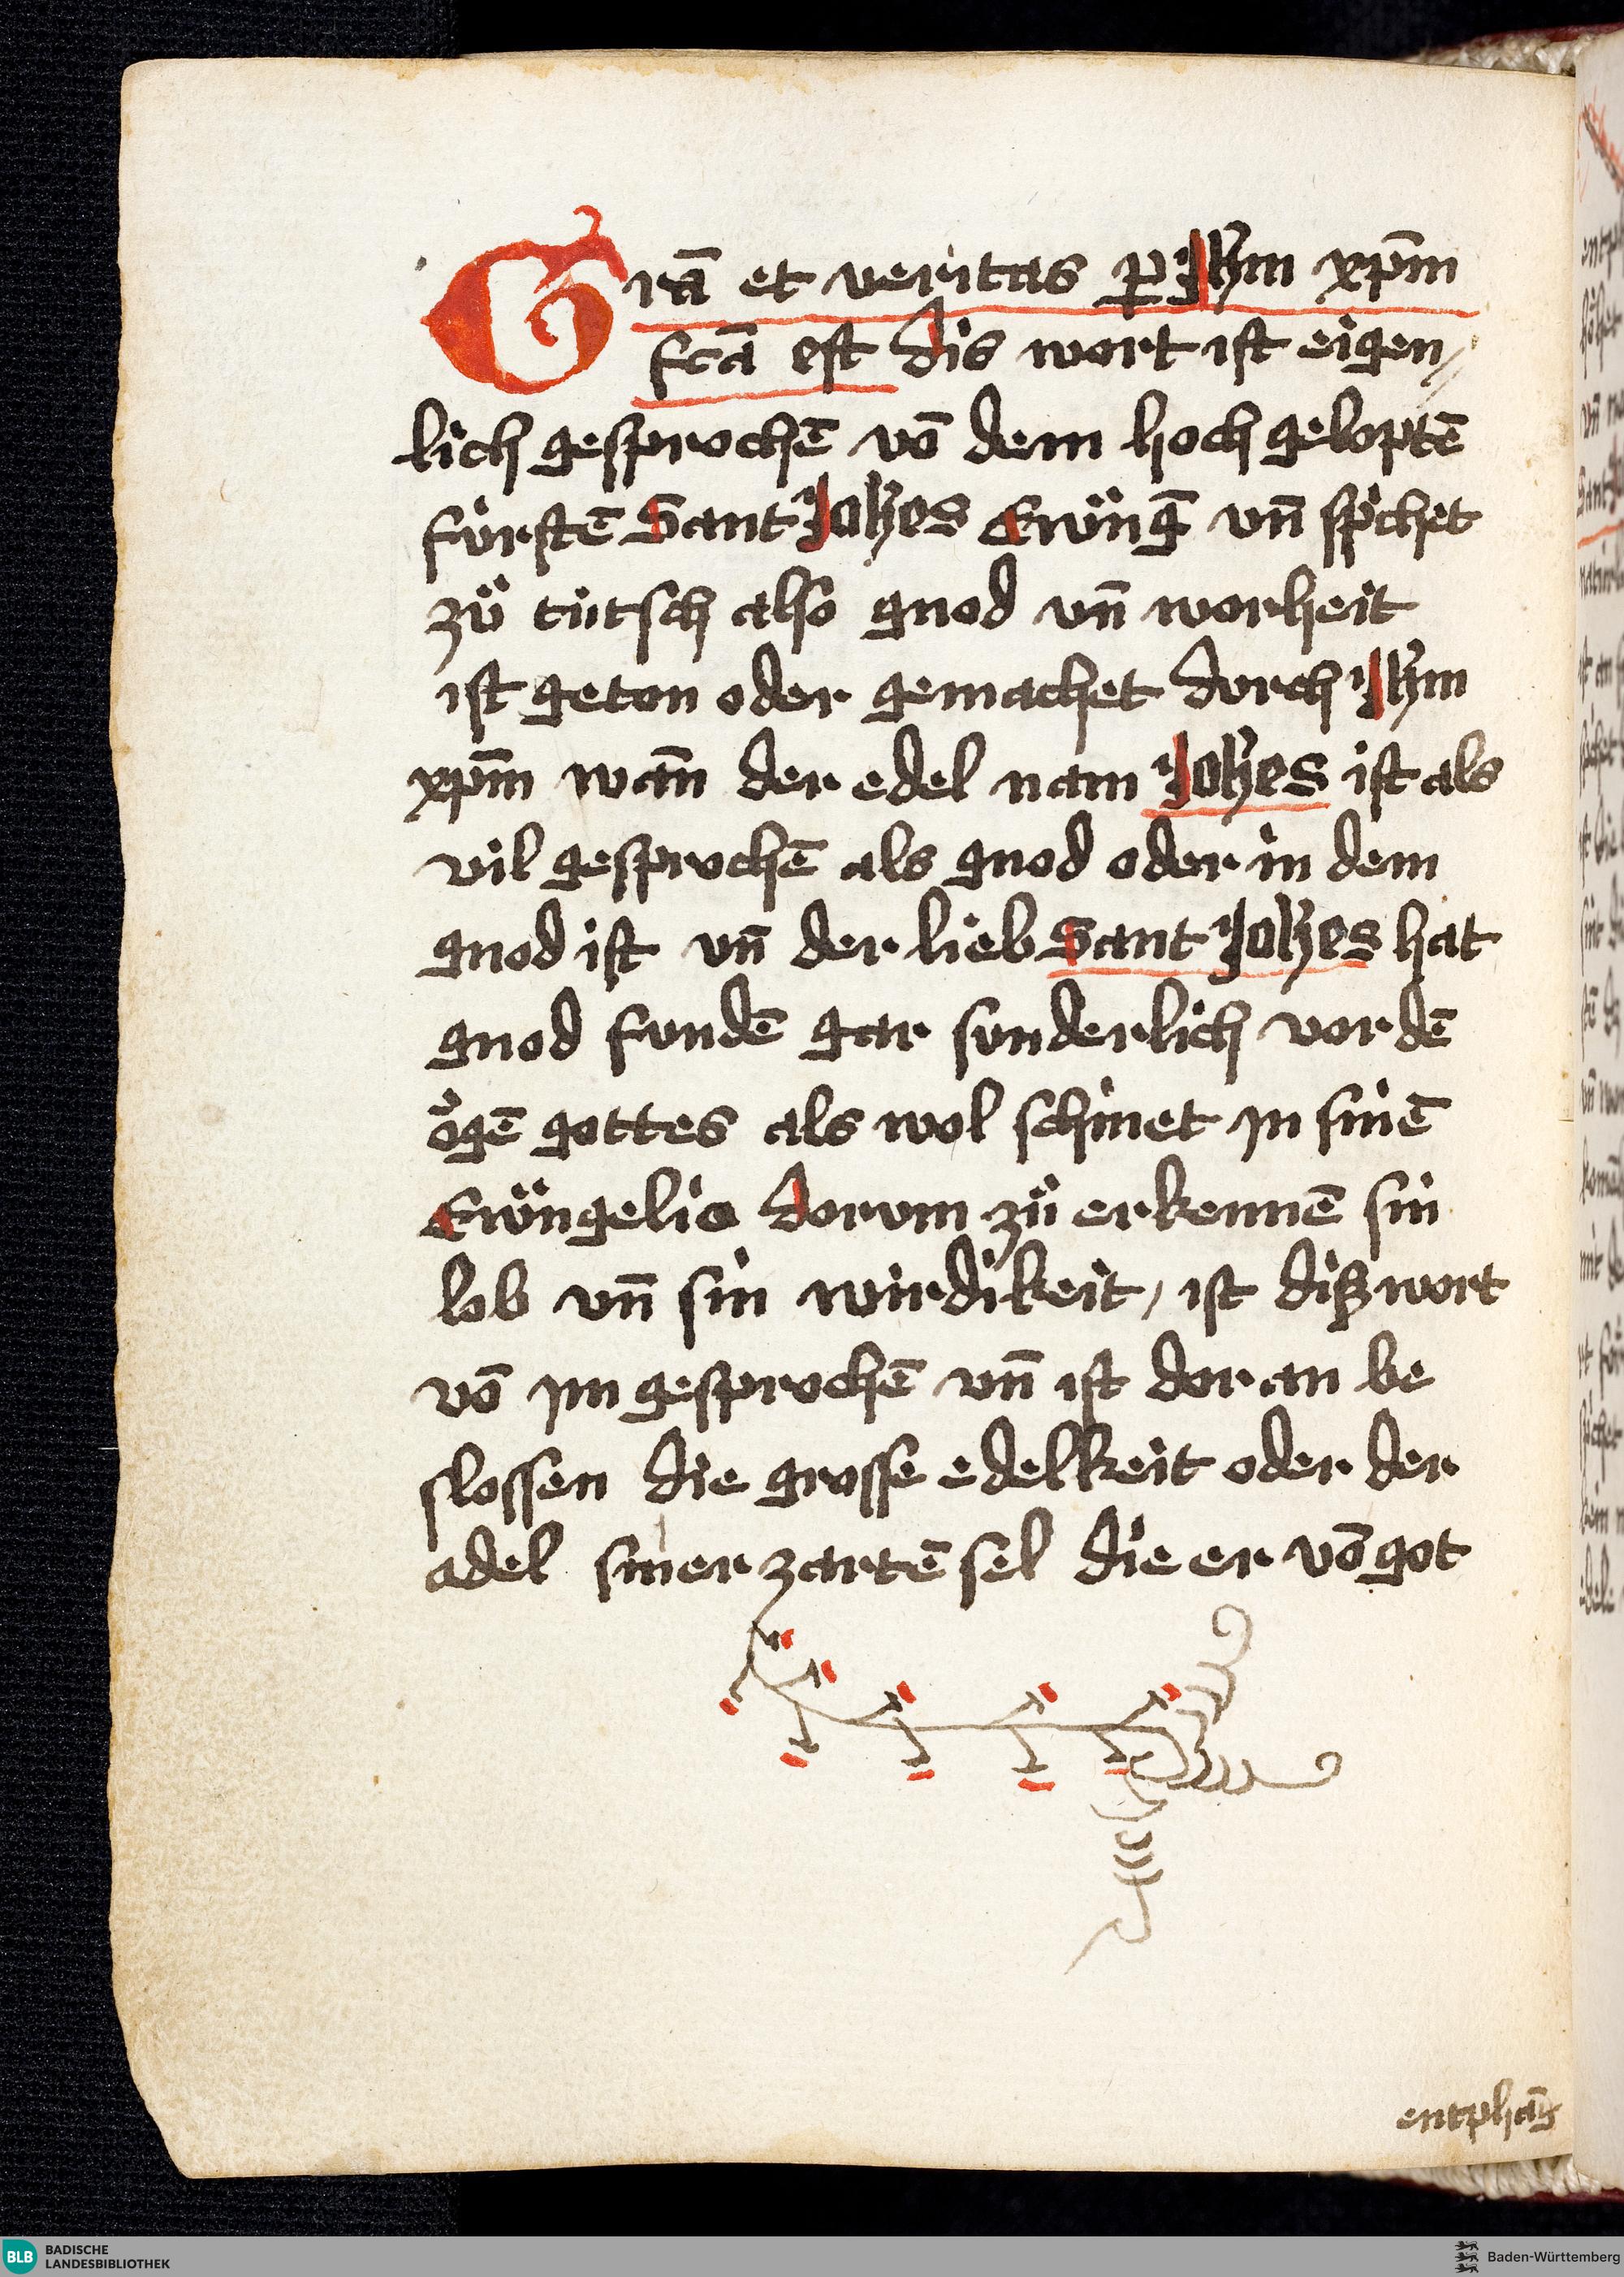 Grā et veritas ꝑ Jhm xp̄m
fcā est dis wort ist eigen⸗
lich gesprochē vō dem hoch geloptē
fürstē Sant Johes Ewāng vn̄ sp̍chet
zů tütsch also gnod vn̄ worheit
ist geton oder gemachet dorch Jhm
xp̄m wan̄ der edel nam Johes ist als
vil gesprochē als gnod oder in dem
gnod ist vn̄ der lieb Sant Johes hat
gnod fundē gar sunderlich vor dē
ögē gottes als wol schinet jn sinē
Ewangelio dorvm zů erkennē sin
lob vn̄ sin wirdikeit / ist diß wort
vō jm gesprochē vn̄ ist dor an be
slossen die grosse edelkeit oder der
adel siner zartē sel die er vō got
entphāg
BLB BADISCHE
LANDESBIBLIOTHEK
Baden-Württemberg